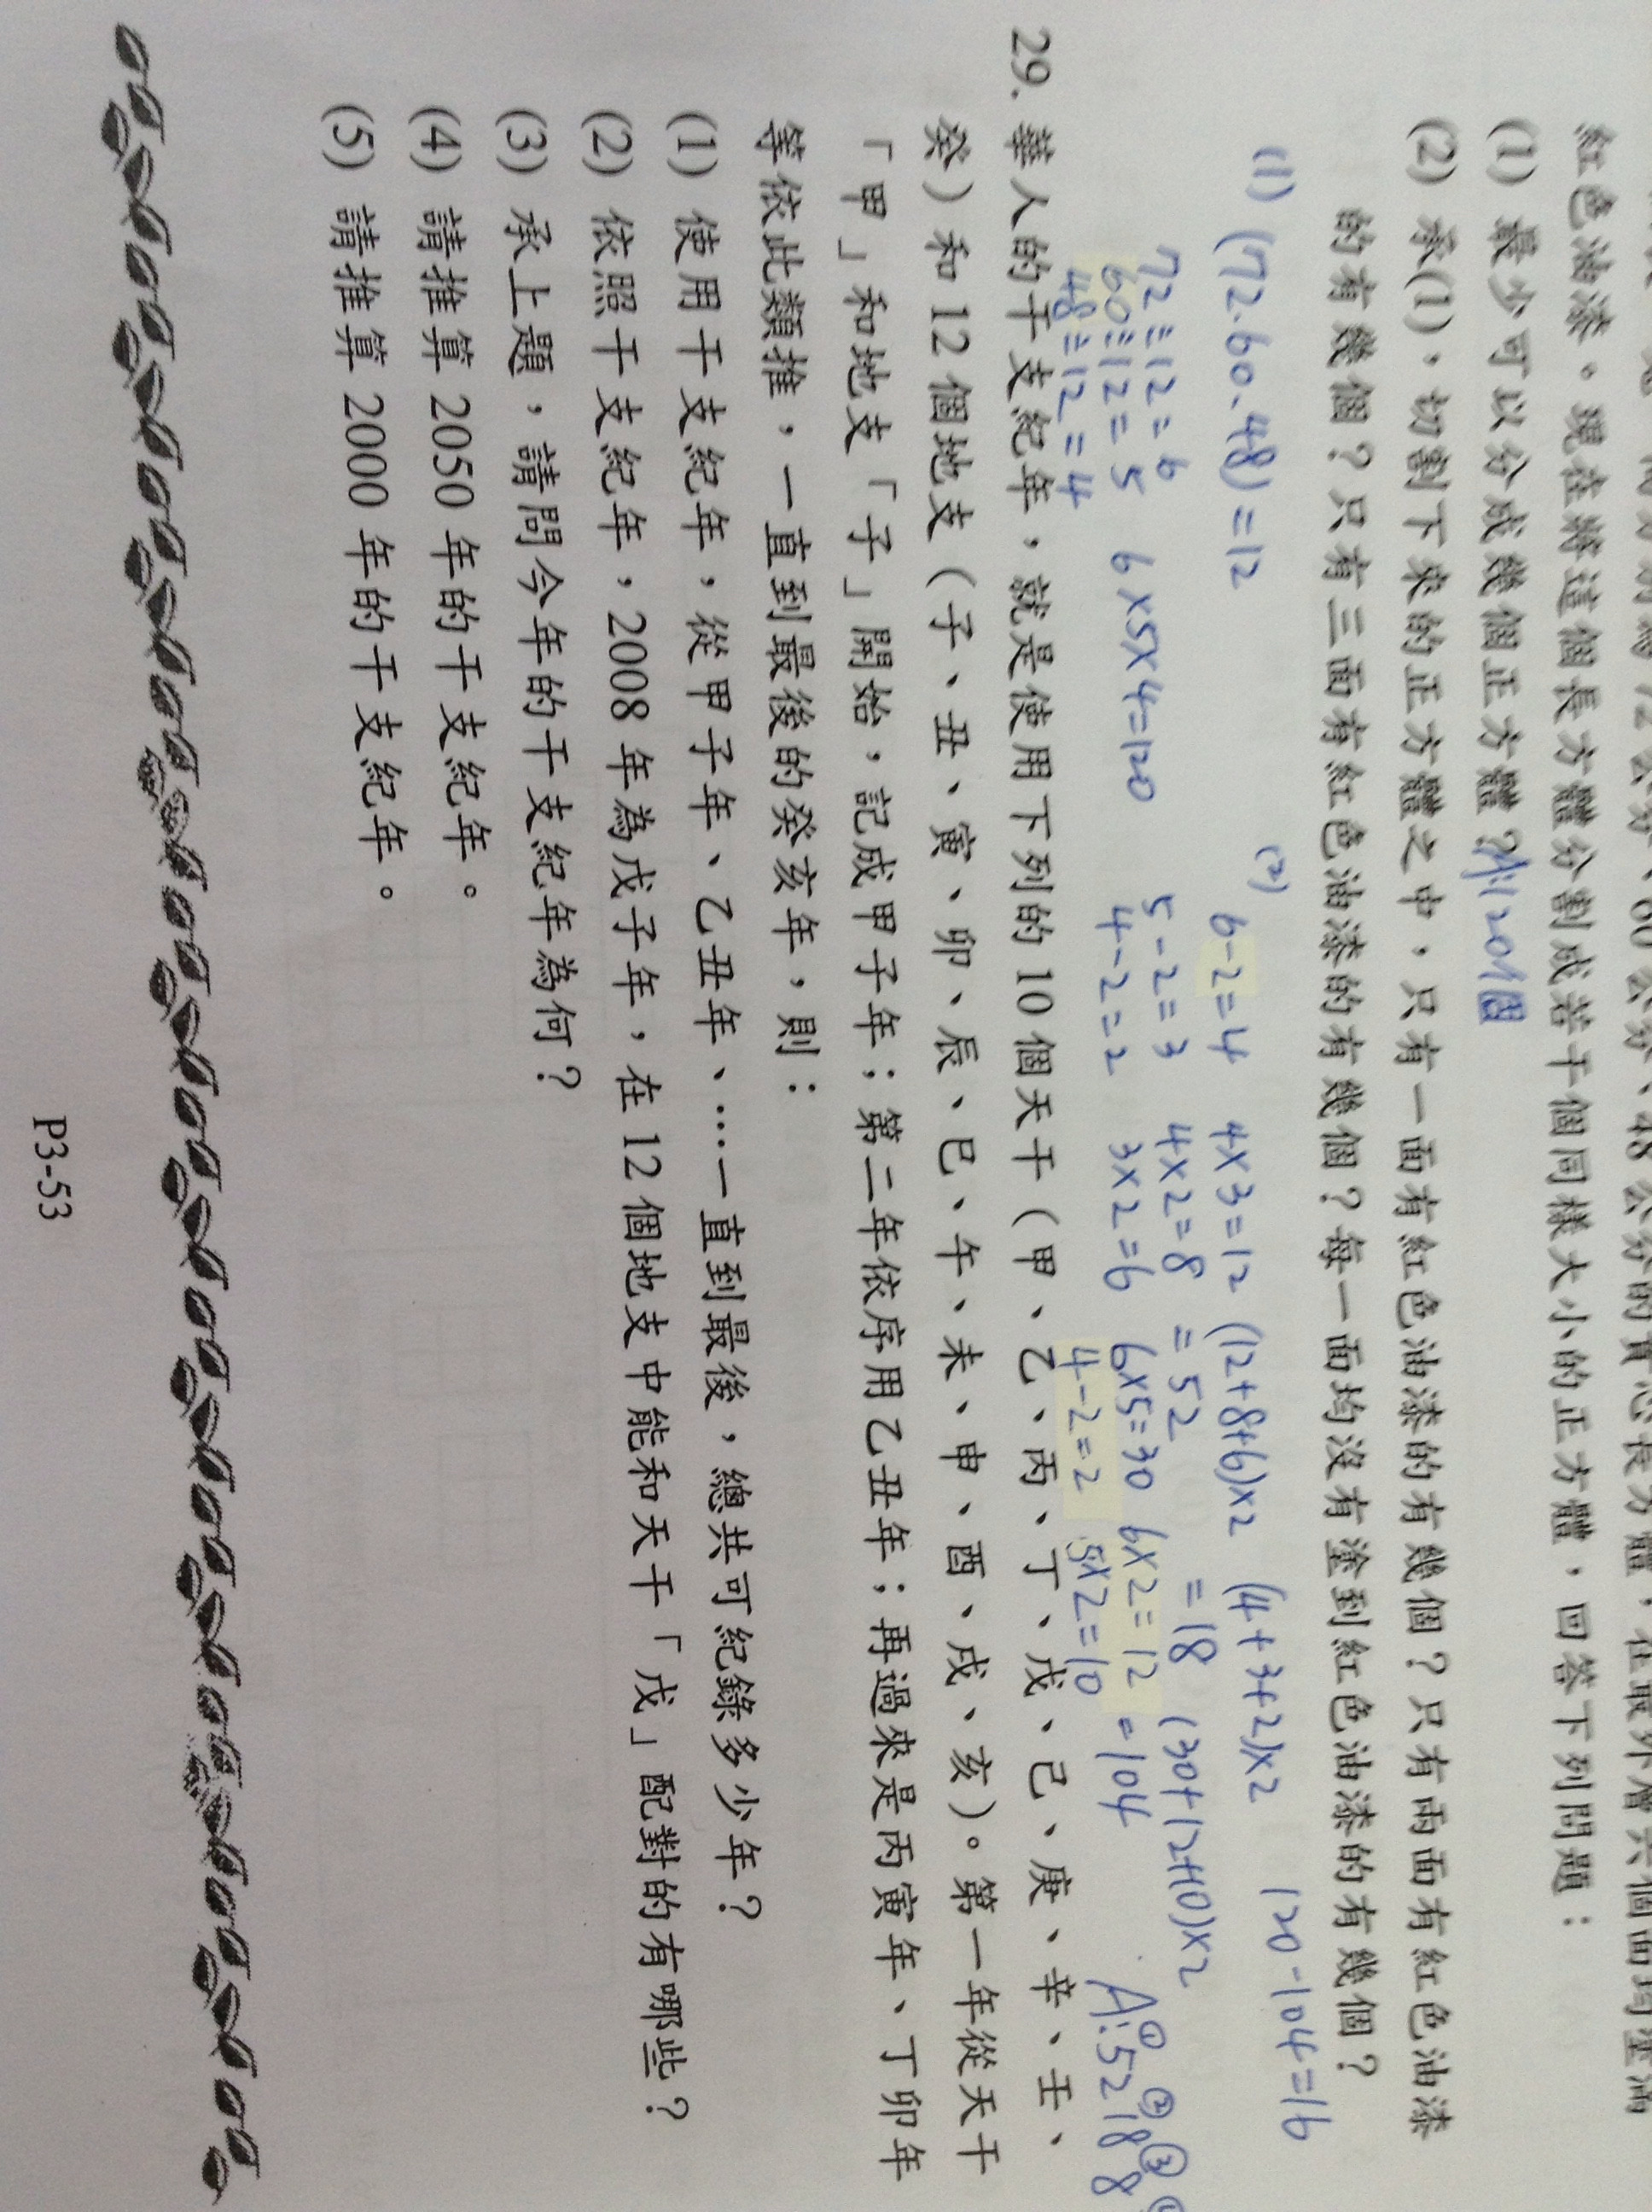 72公分、60公分、48公分的實心長方體，在最外層六個面均塗滿
紅色油漆。現在將這個長方體分割成若干個同樣大小的正方體，回答下列問題：
(1) 最少可以分成幾個正方體？A:120個
(2) 承(1)，切割下來的正方體之中，只有一面有紅色油漆的有幾個？只有兩面有紅色油漆
的有幾個？只有三面有紅色油漆的有幾個？每一面均沒有塗到紅色油漆的有幾個？
(1) (72.60.48)=12
72÷12=6
60÷12=5
48÷12=4
6×5×4=120
(2) 6-2=4
5-2=3
4-2=2
4×3=12
4×2=8
3×2=6
(12+8+6)×2
=52
(4+3+2)×2
=18
6×5=30
4-2=2
6×2=12
5×2=10
(30+12+10)×2
=104
120-104=16
A:①52 ②18 ③8
29. 華人的干支紀年，就是使用下列的10個天干（甲、乙、丙、丁、戊、己、庚、辛、壬、
癸）和12個地支（子、丑、寅、卯、辰、巳、午、未、申、酉、戌、亥）。第一年從天干
「甲」和地支「子」開始，記成甲子年；第二年依序用乙丑年；再過來是丙寅年、丁卯年
等依此類推，一直到最後的癸亥年，則：
(1) 使用干支紀年，從甲子年、乙丑年、…一直到最後，總共可紀錄多少年？
(2) 依照干支紀年，2008年為戊子年，在12個地支中能和天干「戊」配對的有哪些？
(3) 承上題，請問今年的干支紀年為何？
(4) 請推算2050年的干支紀年。
(5) 請推算2000年的干支紀年。
P3-53